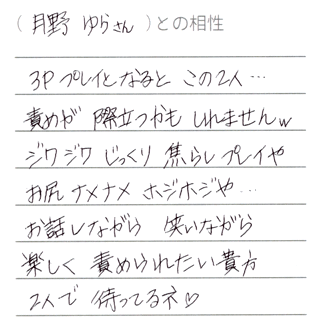 (月野 ゆらさん)との相性
3Pプレイとなると この2人…
責めが 際立つかも しれませんw
ジワジワ じっくり 焦らしプレイや
お尻ナメナメ ホジホジや…
お話しながら 笑いながら
楽しく 責められたい貴方
2人で 待ってるネ♡